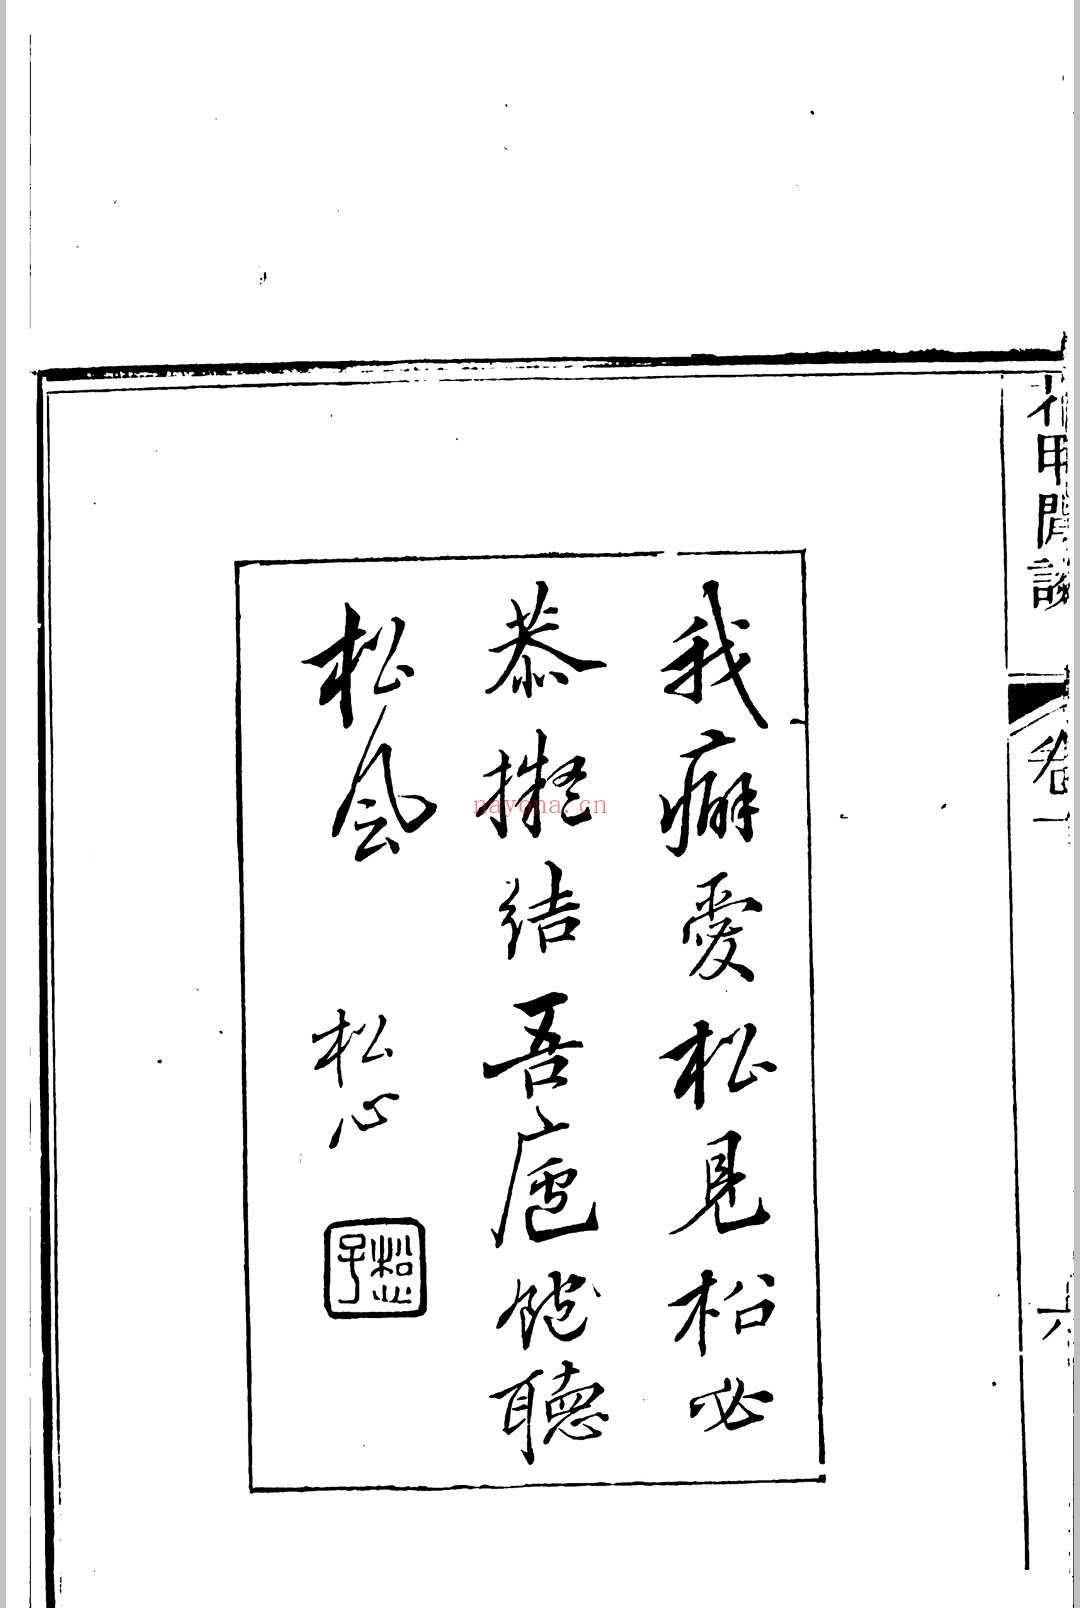 花甲閒談
卷一
六
我癖愛松見松必
恭擬結吾廬飽聽
松風
松心
松心子
nayona.cn